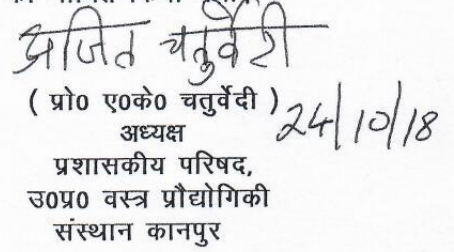 अजित चतुर्वेदी
( प्रो0 ए0के0 चतुर्वेदी ) 24/10/18
अध्यक्ष
प्रशासकीय परिषद,
उ0प्र0 वस्त्र प्रौद्योगिकी
संस्थान कानपुर